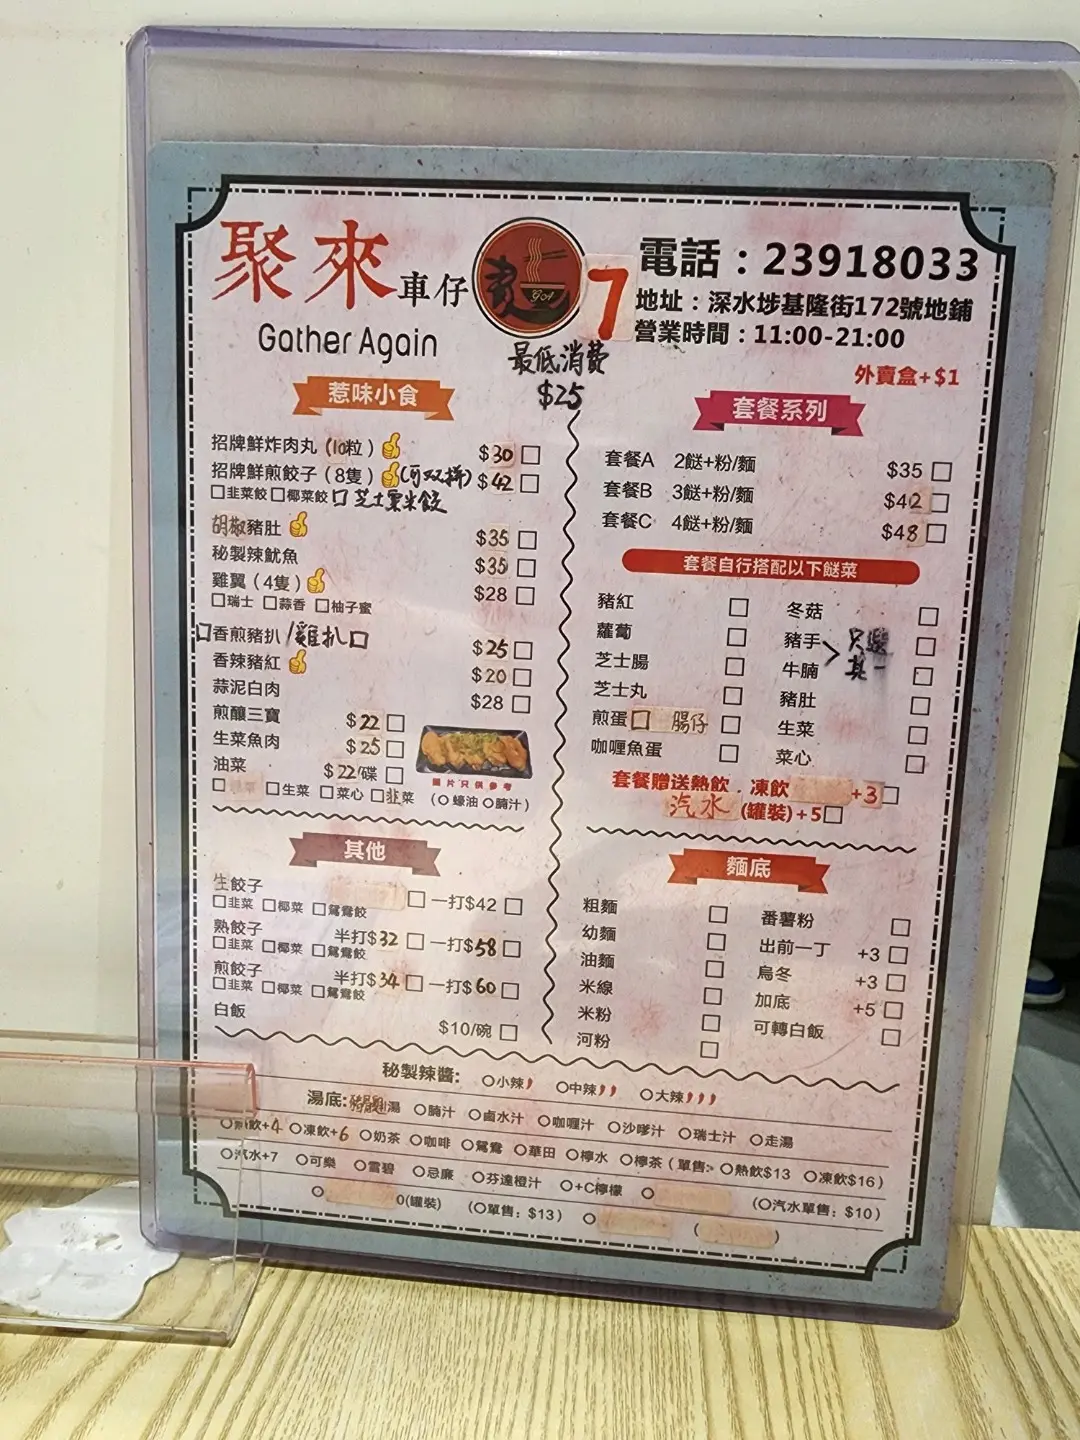 聚來車仔麵
Gather Again
GA
7
電話：23918033
地址：深水埗基隆街172號地鋪
營業時間：11:00-21:00
最低消費
$25
外賣盒+$1
惹味小食
招牌鮮炸肉丸（10粒） $30
招牌鮮煎餃子（8隻）(可双拼) $42
韭菜餃 椰菜餃 芝士粟米餃
胡椒豬肚 $35
秘製辣魷魚 $35
雞翼（4隻） $28
瑞士 蒜香 柚子蜜
香煎豬扒/雞扒 $25
香辣豬紅 $20
蒜泥白肉 $28
煎釀三寶 $22
生菜魚肉 $25
油菜 $22/碟
生菜 菜心 韭菜 （蠔油 腩汁）
圖片只供參考
套餐系列
套餐A 2餸+粉/麵 $35
套餐B 3餸+粉/麵 $42
套餐C 4餸+粉/麵 $48
套餐自行搭配以下餸菜
豬紅 冬菇
蘿蔔 豬手
芝士腸 牛腩
只選其一
芝士丸 豬肚
煎蛋 腸仔 生菜
咖喱魚蛋 菜心
套餐贈送熱飲．凍飲 +3
汽水 (罐裝)+5
其他
生餃子 一打$42
韭菜 椰菜 鴛鴦餃
熟餃子 半打$32 一打$58
韭菜 椰菜 鴛鴦餃
煎餃子 半打$34 一打$60
韭菜 椰菜 鴛鴦餃
白飯 $10/碗
麵底
粗麵 番薯粉
幼麵 出前一丁 +3
油麵 烏冬 +3
米線 加底 +5
米粉 可轉白飯
河粉
秘製辣醬： 小辣 中辣 大辣
湯底: 湯 腩汁 鹵水汁 咖喱汁 沙嗲汁 瑞士汁 走湯
熱飲+4 凍飲+6 奶茶 咖啡 鴛鴦 華田 檸水 檸茶（單售:> 熱飲$13 凍飲$16）
汽水+7 可樂 雪碧 忌廉 芬達橙汁 +C檸檬 （汽水單售：$10）
0(罐裝) （單售：$13）